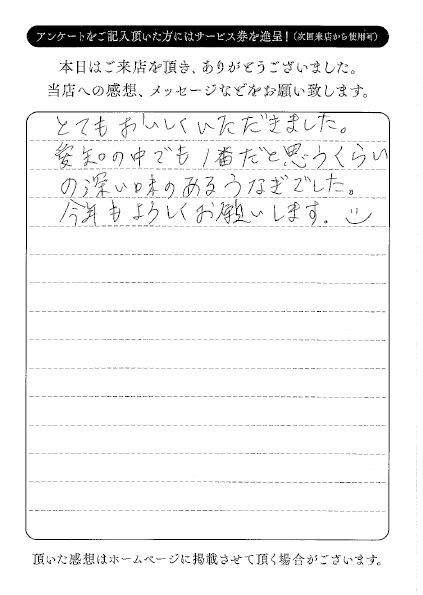 アンケートをご記入頂いた方にはサービス券を進呈！（次回来店から使用可）
本日はご来店を頂き、ありがとうございました。
当店への感想、メッセージなどをお願い致します。
とてもおいしくいただきました。
愛知の中でも1番だと思うくらい
の深い味のあるうなぎでした。
今年もよろしくお願いします。
頂いた感想はホームページに掲載させて頂く場合がございます。